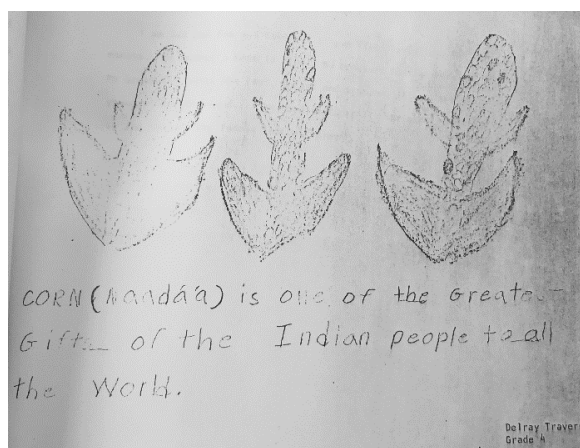 CORN (Naadą́ą) is one of the Greatest
Gifts of the Indian people to all
the World.
Delray Traver
Grade 4